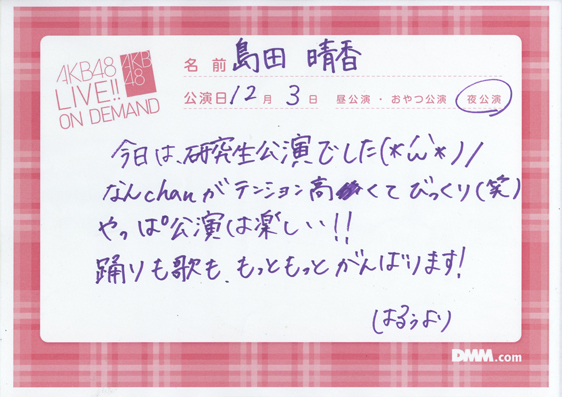 AKB48
LIVE!!
ON DEMAND
AKB
48
名前 島田 晴香
公演日 12月 3日 昼公演・おやつ公演・夜公演
今日は、研究生公演でした(*'ω'*)/
なんchanがテンション高くてびっくり(笑)
やっぱ公演は楽しい!!
踊りも歌も、もっともっとがんばります!
はるぅより
DMM.com